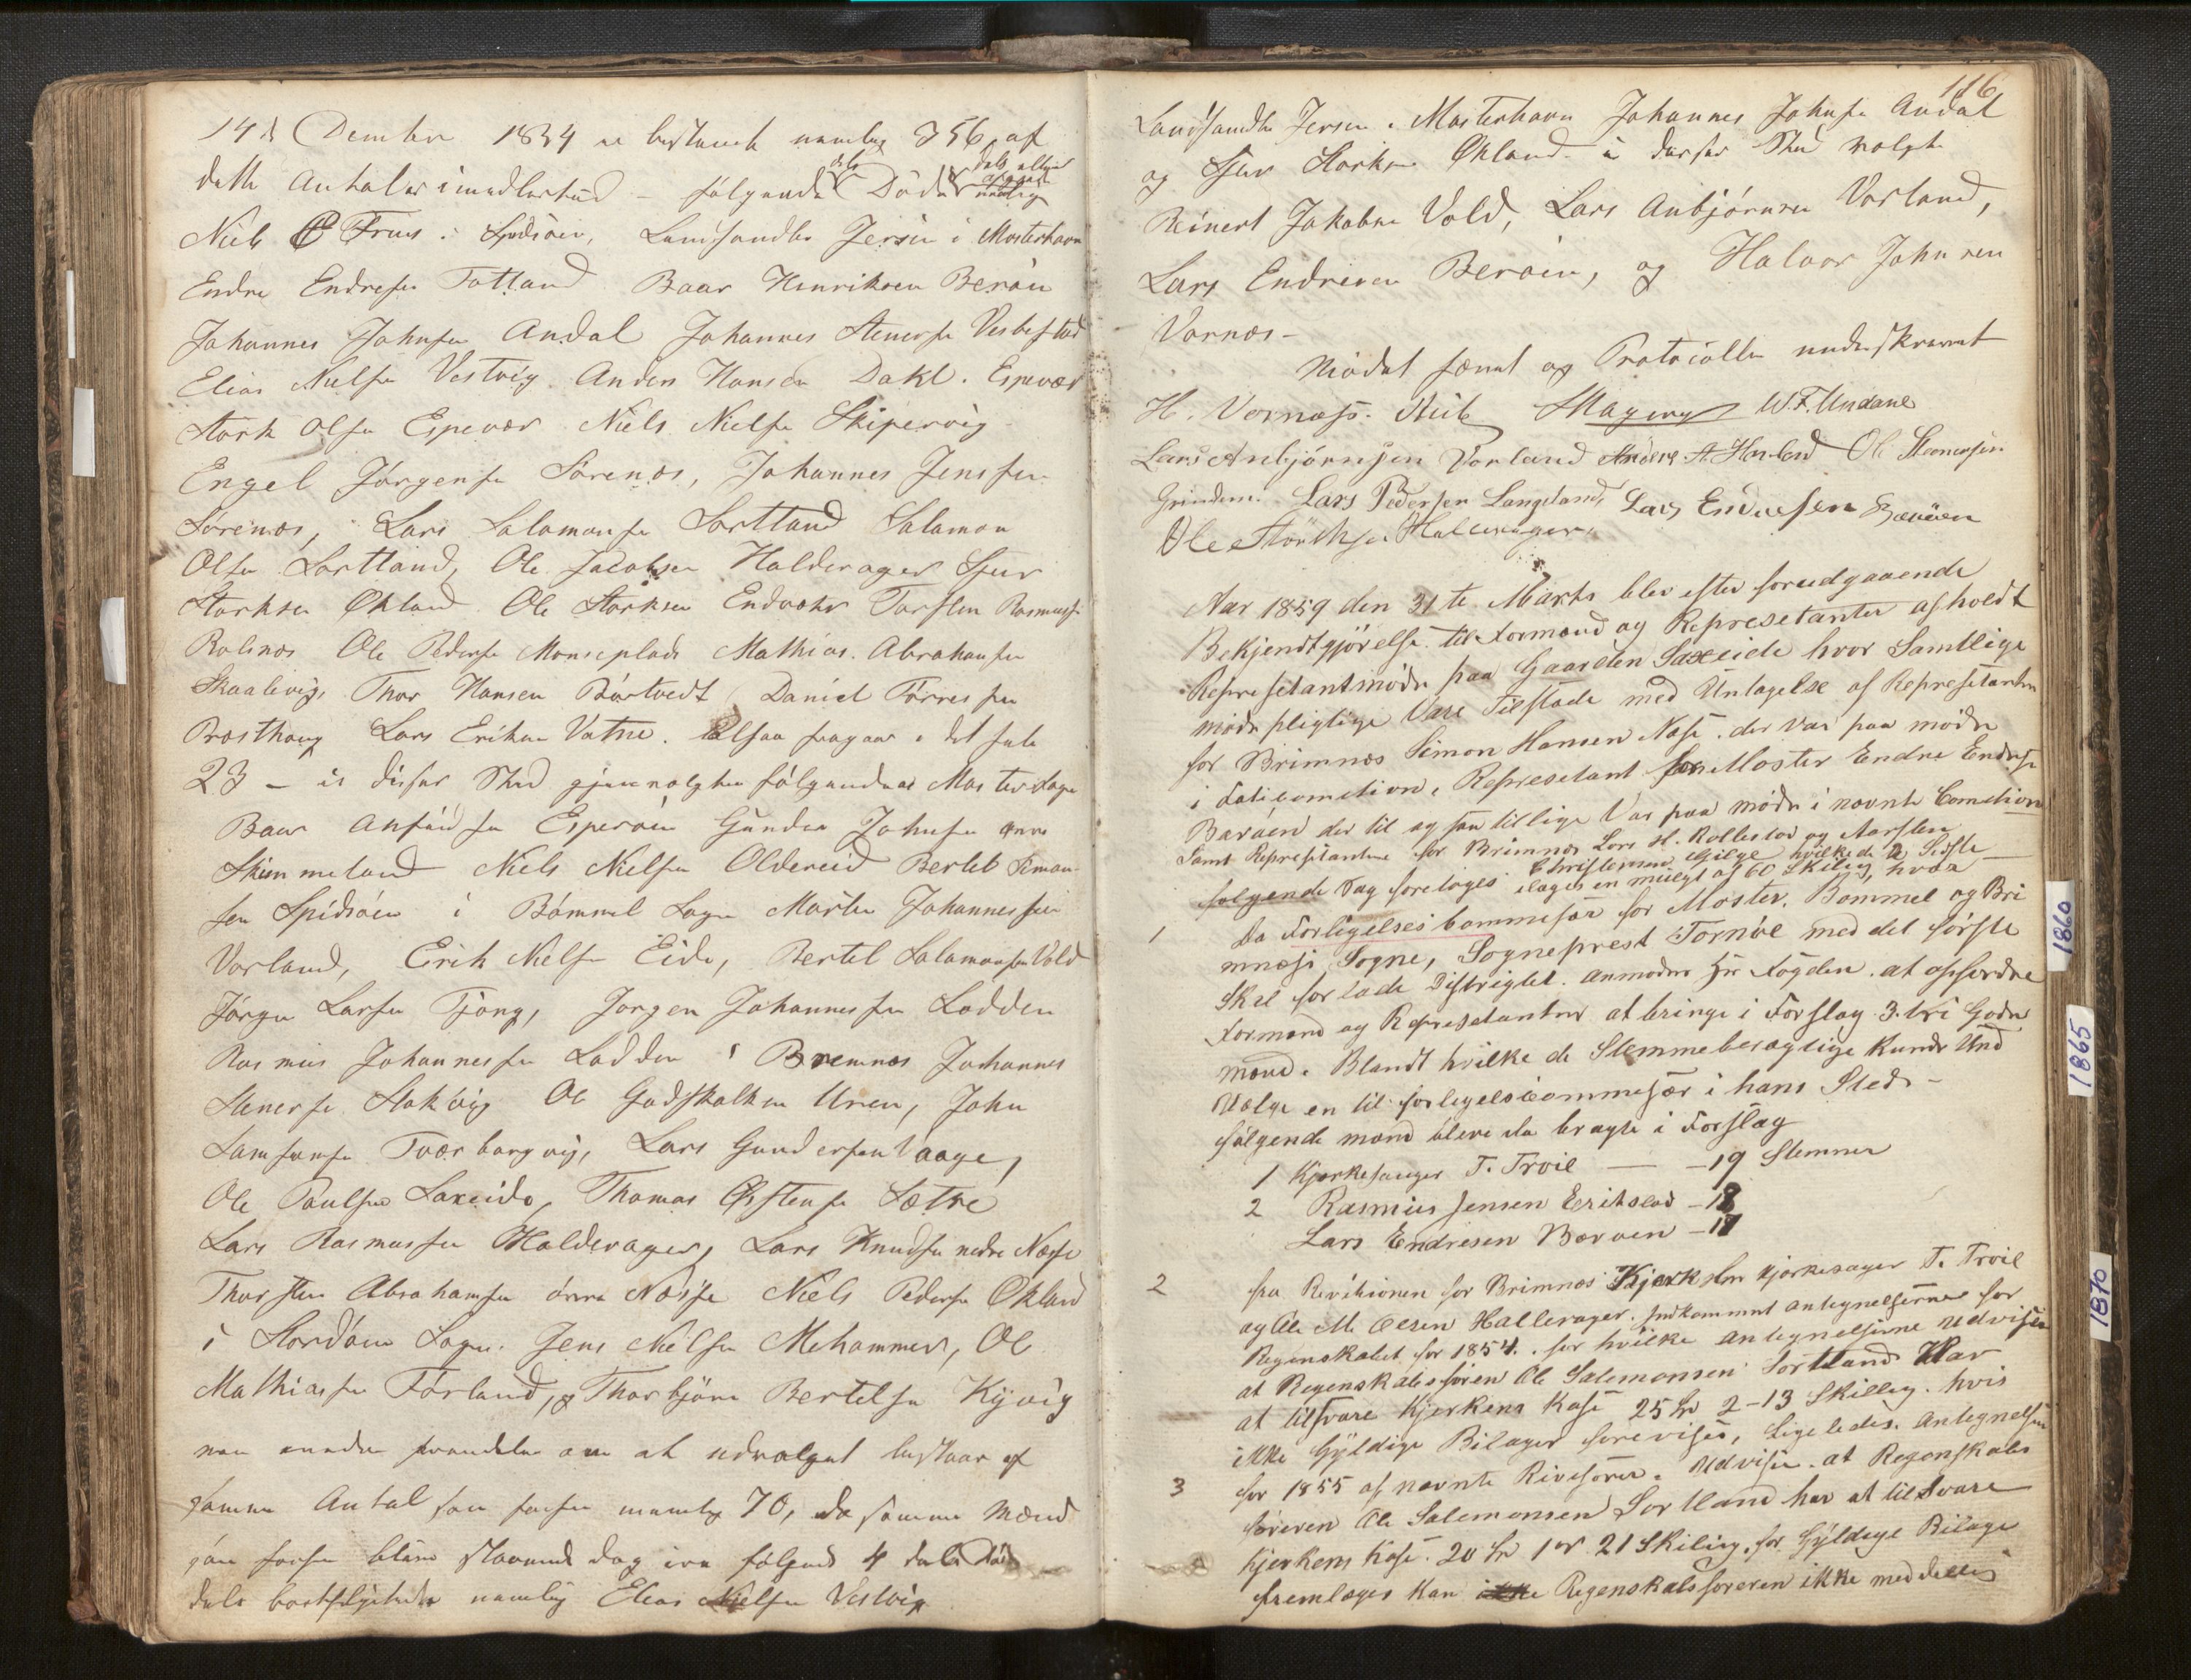 14de December 1834 er bestemt nemlig 356, af
dette Antal er imidlertid – følgende dels Døde dels
Niels Friis i Spidsøen, Landhandler Jersin i Mosterhavn
Endre Endresen Totland Baar Henriksen Berøen
Johannes Johnsen Andal Johannes Stenersen Vesbestad
Elias Nielsen Vestvig Anders Hansen Dakl. Espevær
Stork Olsen Espevær Niels Nielsen Skipervig
Engel Jørgensen Sørenæs, Johannes Jensen
Sørenæs, Lars Salamonsen Sortland Salamon
Olsen Sortland, Ole Jacobsen Halderager Sjur
Storksen Økland. Ole Storksen Torsten Rasmussen
Rolsnæs Ole Pedersen Monseplads Mathias Abrahamsen
Skaalevig, Thor Hansen Børtvedt Daniel Tørresen
Præsthoug Lars Eriksen Vatne. altsaa fragaar i det hele
23 – i disses Sted gjenvalgtes følgende i Moster Sogn
Baar Anfindsen Esperøen Gunder Johnsen øvre
Skimmeland Niels Nielsen Oldereid Bertel Simon-
sen Spidsøen i Bømmel Sogn Morten Johannessen
Vorland, Erik Nielsen Eide, Bertel Salamonsen Vold
Jørgen Larsen Tjong, Jørgen Johannessen Lodden
Rasmus Johannessen Lodden i Bremnæs Johannes
Stenersen Stokvig Ole Godskalksen Uren, John
Samsonsen Tværborgvig, Lars Gundersen Vaage,
Ole Paulsen Saxeide, Thomas Østensen Sætre
Lars Rasmussen Halderager, Lars Knudsen nedre Næsse
Thorsten Abrahamsen øvre Næsse Niels Pedersen Økland
i Stordøen Sogn. Jens Nielsen Mehammer, Ole
Mathiassen Førland, og Thorbjørn Bertelsen Kyvig
om at udvalget bestaar af
samme Antal som forhen nemlig 70, da samme Mænd
som forhen dog ere følgende 4 dels døde
dels bortflyttede nemlig Elias Nielsen Vestvig
116
Landhandler Jersin i Mosterhavn Johannes Johnsen Andal
og Sjur Storksen Økland i deres Sted valgt
Reinert Jakobsen Vold, Lars Anbjørnsen Vorland,
Lars Endresen Berøen, og Halvor Johnsen
Vornæs –
Mødet hævet og Protocollen underskrevet
H. Vornæss. W. F. Undahl
Lars Anbjørnsen Vorland Anders A. Ole Steenersen
Grindem. Lars Pedersen Langeland, Lars Endresen Berøen
Ole Størksen Hallerager.
Aar 1859 den 31te Marts blev efter forudgaaende
Bekjendtgjørelse til Formænd og Represetanter afholdt
Represetantmøde paa Gaarden Saxeide hvor Samtlige
mødepligtige Vare Tilstæde med Untagelse af Represetanten
for Brimnæs Simon Hansen Næse. der var paa møde
i Faticomition, Represetant for Moster Endre Endresen
Barøen der til og han tillige Var paa møde i nævnte Comition
Samt Represetantene for Brimnæs Lars H. Rollestad og Aarsten
Christensen Gilje hvilke de 2 Sidste
følgende Dag foretoges ilages en mulgt af 60 Skiling, hvor
1 Da Forligelses Commesær for Moster, Bømmel og Bri
mnæss Sogne, Sogneprest Tornøe med det første
Skal forlade Distrigtet. anmoder Hr Fogden. at opfordre
Formænd og Represetanter at bringe i Forslag 3. tri Gode
mænd. Blandt hvilke de Stemmeberegtige Kunde Ud
Vælge en til forligelsecommesær i hans Sted –
følgende mænd bleve da bragte i Forslag
1 Kjerkesanger T. Troie — – 19 Stemmer
2 Rasmus Jensen Eeriksted – 18
Lars Endresen Børøen – 17
2 fra Revitionen for Brimnæs Kjerk ved kjerkesager T. Troie
og Ole M. Olsen Hallerager. indkommet antegnelserne for
Regenskabet for 1854. for hvilke antegnelserne udviser
at Regenskabsføren Ole Salemonsen Sortland Har
at tilsvare Kjerkens Kase 25 Sp 2–13 Skilling. hvis
ikke Gyldige Bilager forevises, Ligeledes. antegnelsen
3 for 1855 af nævnte Riviserer. Udviser. at Regenskabs
føreren Ole Salemonsen Sortland har at tilsvare
kjerkens Kase. 20 Sp 1 ort 21 Skiling. for Gyldige Bilage
fremlæges kan ikke Regenskabsføreren ikke meddelles
1860
1865
1870